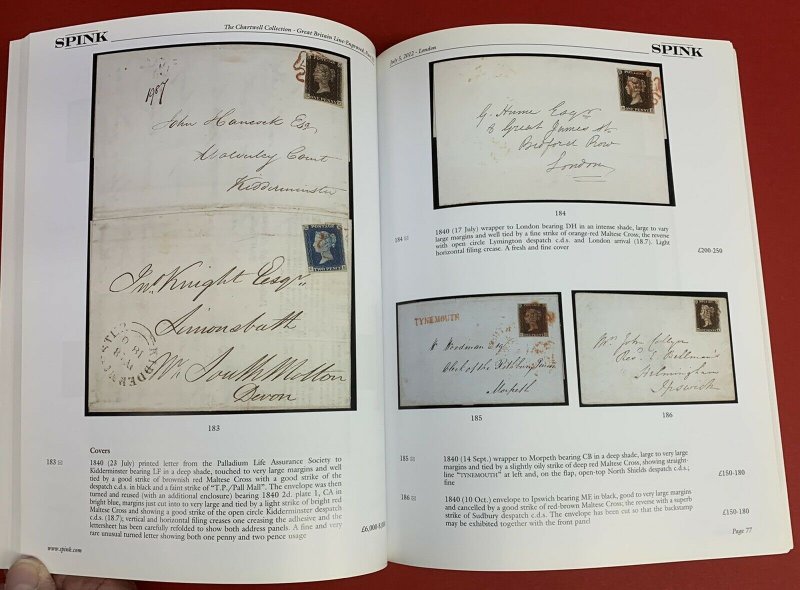 SPINK
The Chartwell Collection - Great Britain Line-Engraved,
1987
John Hancock Esq
Court
Kidderminster
POSTAGE
ONE PENNY
POSTAGE
TWO PENCE
Jno. Knight Esqr.
Simonsbath
Nr. South Molton
Devon
183
Covers
183
1840 (23 July) printed letter from the Palladium Life Assurance Society to
Kidderminster bearing LF in a deep shade, touched to very large margins and well
tied by a good strike of brownish red Maltese Cross with a good strike of the
despatch c.d.s. in black and a faint strike of "T.P./Pall Mall". The envelope was then
turned and reused (with an additional enclosure) bearing 1840 2d. plate 1, CA in
bright blue, margins just cut into to very large and tied by a light strike of bright red
Maltese Cross and showing a good strike of the open circle Kidderminster despatch
c.d.s. (18.7); vertical and horizontal filing creases one creasing the adhesive and the
lettersheet has been carefully refolded to show both address panels. A fine and very
rare unusual turned letter showing both one penny and two pence usage
£6,000-8,000
www.spink.com
July 5, 2012 - London
SPINK
G. Hume Esqr
8 Great James St
Bedford Row
London
184
184
1840 (17 July) wrapper to London bearing DH in an intense shade, large to very
large margins and well tied by a fine strike of orange-red Maltese Cross; the reverse
with open circle Lymington despatch c.d.s. and London arrival (18.7). Light
horizontal filing crease. A fresh and fine cover
£200-250
TYNEMOUTH
Woodman Esq
Clerk of the
Morpeth
185
Mr. John
Revd.
Ipswich
186
185
1840 (14 Sept.) wrapper to Morpeth bearing CB in a deep shade, large to very large
margins and tied by a slightly oily strike of deep red Maltese Cross, showing straight-
line "TYNEMOUTH" at left and, on the flap, open-top North Shields despatch c.d.s.;
fine
£150-180
186
1840 (10 Oct.) envelope to Ipswich bearing ME in black, good to very large margins
and cancelled by a good strike of red-brown Maltese Cross, the reverse with a superb
strike of Sudbury despatch c.d.s. The envelope has been cut so that the backstamp
may be exhibited together with the front panel
£150-180
Page 77